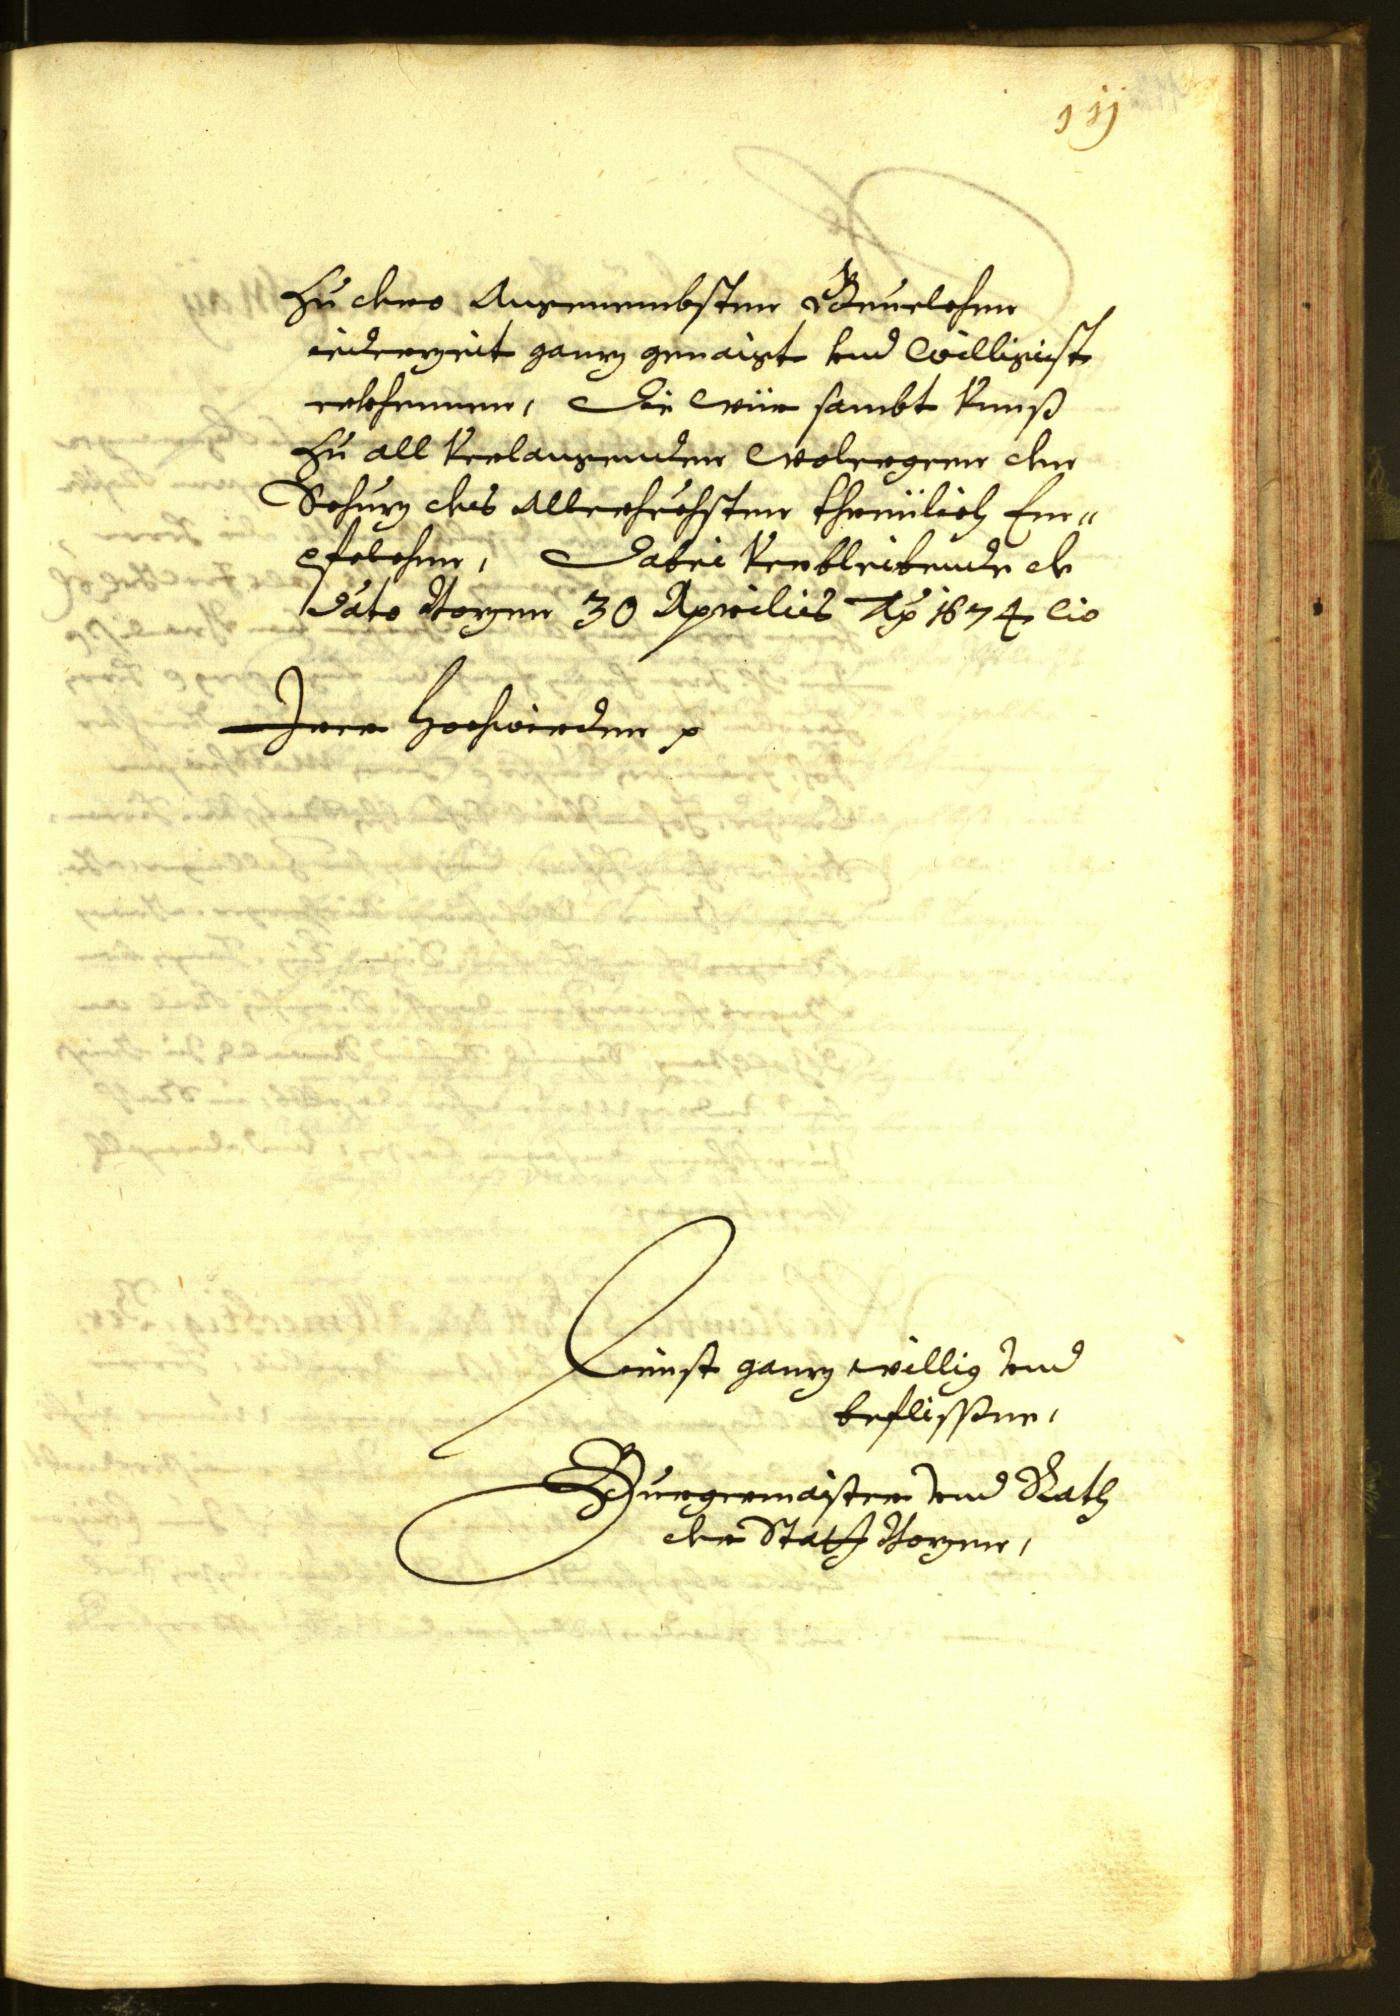 111
Zu dero Angenembsten Bevelchen
iederzeit gancz genaigt vnd willigist
erkhennen, die wür sambt vnnß
Zu all verlangenden wolergeen dem
Schucz des Allerhechsten threülich Em¬
pfelchen, dabei verbleibende de
dato Bozen 30 Aprilis Ao 1674
Irer Hochwirden p
Dienst gancz willig vnd
beflissne,
Burgermaister vnd Rath
der Statt Bozen,